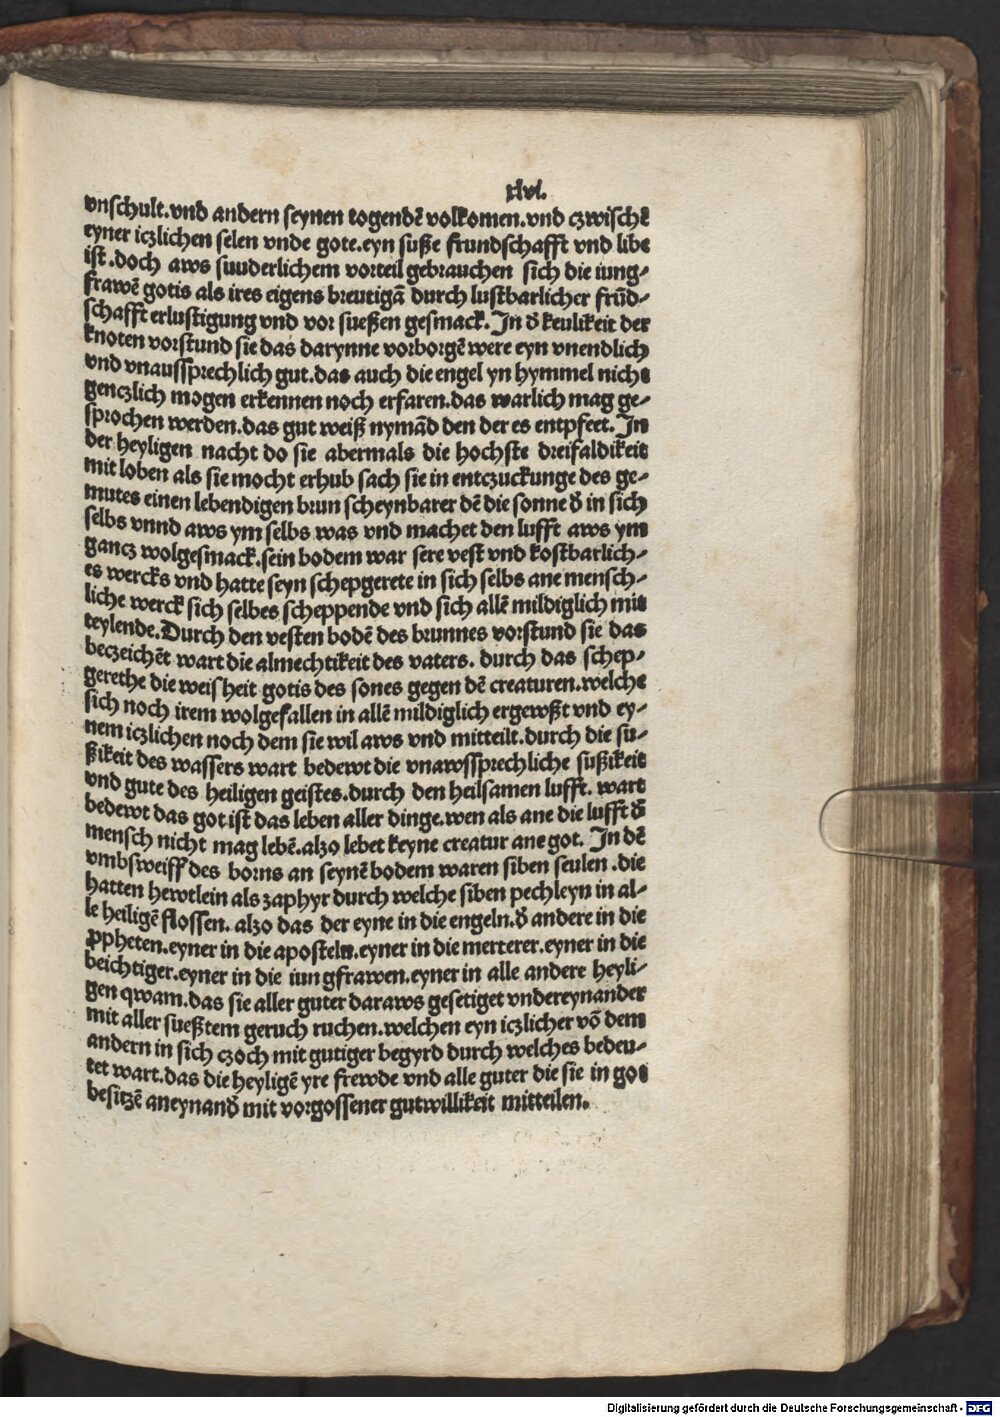 xlvi.
vnschult.vnd andern seynen togendē volkomen.vnd czwischē
eyner iczlichen selen vnde gote.eyn suße frundschafft vnd libe
ist.doch aws suuderlichem vorteil gebrauchen sich die iung-
frawē gotis als ires eigens breutigā durch lustbarlicher frūd-
schafft erlustigung vnd vor sueßen gesmack. In d̄ keulikeit der
knoten vorstund sie das darynne vorborgē were eyn vnendlich
vnd vnaussprechlich gut.das auch die engel yn hymmel nicht
genczlich mogen erkennen noch erfaren.das warlich mag ge-
sprochen werden.das gut weiß nymād den der es entpfeet. In
der heyligen nacht do sie abermals die hochste dreifaldikeit
mit loben als sie mocht erhub sach sie in entczuckunge des ge-
mutes einen lebendigen brun scheynbarer dē die sonne d̄ in sich
selbs vnnd aws ym selbs was vnd machet den lufft aws ym
gancz wolgesmack.sein bodem war sere vest vnd kostbarlich-
es wercks vnd hatte seyn schepgerete in sich selbs ane mensch-
liche werck sich selbes scheppende vnd sich allē mildiglich mit
teylende.Durch den vesten bodē des brunnes vorstund sie das
beczeichēt wart die almechtikeit des vaters. durch das schep-
gerethe die weisheit gotis des sones gegen dē creaturen.welche
sich noch irem wolgefallen in allē mildiglich ergewßt vnd ey-
nem iczlichen noch dem sie wil aws vnd mitteilt.durch die su-
ßikeit des wassers wart bedewt die vnawssprechliche sußikeit
vnd gute des heiligen geistes.durch den heilsamen lufft. wart
bedewt das got ist das leben aller dinge.wen als ane die lufft d̄
mensch nicht mag lebē.alzo lebet keyne creatur ane got. In dē
vmbsweiff des borns an seynē bodem waren siben seulen .die
hatten hewtlein als zaphyr durch welche siben pechleyn in al-
le heiligē flossen. alzo das der eyne in die engeln.d̄ andere in die
ꝓpheten.eyner in die aposteln.eyner in die merterer.eyner in die
beichtiger.eyner in die iungfrawen.eyner in alle andere heyli-
gen qwam.das sie aller guter daraws gesetiget vndereynander
mit aller sueßtem geruch ruchen.welchen eyn iczlicher vō dem
andern in sich czoch mit gutiger begyrd durch welches bedeu-
tet wart.das die heyligē yre frewde vnd alle guter die sie in got
besitzē aneynand̄ mit vorgossener gutwillikeit mitteilen.
Digitalisierung gefördert durch die Deutsche Forschungsgemeinschaft - DFG